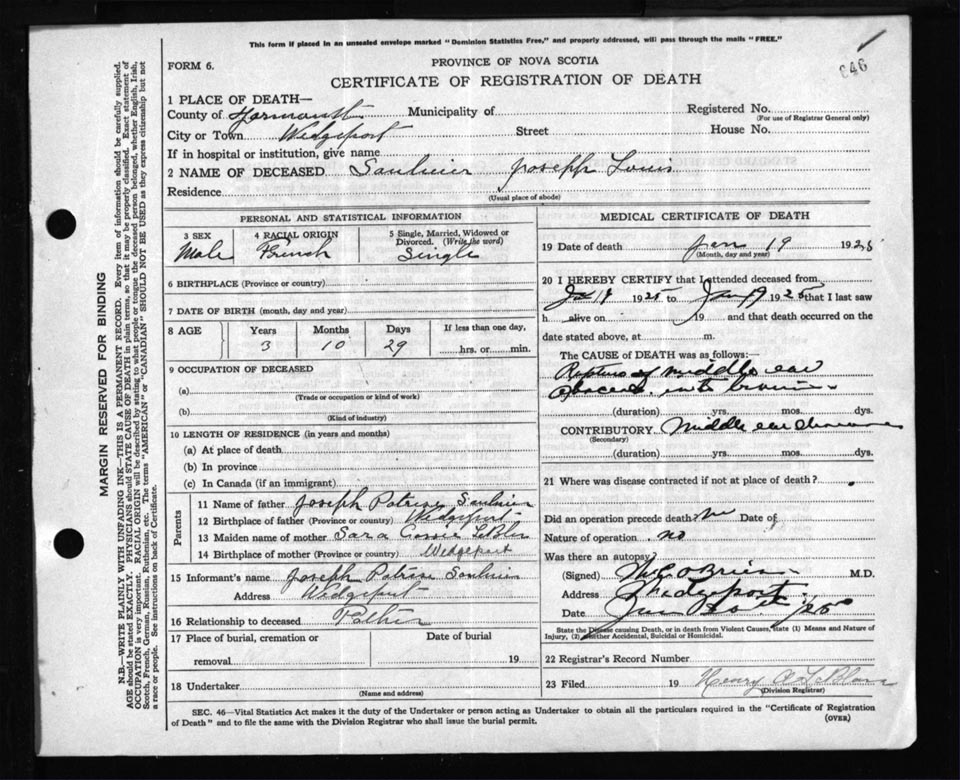 This form if placed in an unsealed envelope marked "Dominion Statistics Free," and properly addressed, will pass through the mails "FREE."
646
FORM 6.
PROVINCE OF NOVA SCOTIA
CERTIFICATE OF REGISTRATION OF DEATH
1 PLACE OF DEATH—
County of Yarmouth Municipality of Registered No.
(For use of Registrar General only)
City or Town Wedgeport Street House No.
If in hospital or institution, give name
2 NAME OF DECEASED Saulnier Joseph Louis
Residence
(Usual place of abode)
MARGIN RESERVED FOR BINDING
N.B.—WRITE PLAINLY WITH UNFADING INK—THIS IS A PERMANENT RECORD. Every item of information should be carefully supplied.
AGE should be stated EXACTLY. PHYSICIANS should STATE CAUSE OF DEATH in plain terms, so that it may be properly classified. Exact statement of
OCCUPATION is very important. RACIAL ORIGIN will be described by stating to what people or tongue the deceased person belonged, whether English, Irish,
Scotch, French, German, Russian, Ruthenian, etc. The terms "AMERICAN" or "CANADIAN" SHOULD NOT BE USED as they express citizenship but not
a race or people. See instructions on back of Certificate.
PERSONAL AND STATISTICAL INFORMATION
3 SEX 4 RACIAL ORIGIN 5 Single, Married, Widowed or
Divorced. (Write the word)
Male French Single
6 BIRTHPLACE (Province or country)
7 DATE OF BIRTH (month, day and year)
8 AGE Years Months Days If less than one day,
3 10 29 hrs. or min.
9 OCCUPATION OF DECEASED
(a)
(Trade or occupation or kind of work)
(b)
(Kind of industry)
10 LENGTH OF RESIDENCE (in years and months)
(a) At place of death
(b) In province
(c) In Canada (if an immigrant)
Parents
11 Name of father Joseph Saulnier
12 Birthplace of father (Province or country) Wedgeport
13 Maiden name of mother Sara
14 Birthplace of mother (Province or country) Wedgeport
15 Informant's name Joseph Saulnier
Address Wedgeport
16 Relationship to deceased Father
17 Place of burial, cremation or Date of burial
removal 19
18 Undertaker
(Name and address)
MEDICAL CERTIFICATE OF DEATH
19 Date of death Jan 19 192
(Month, day and year)
20 I HEREBY CERTIFY that I attended deceased from
192 to 192 that I last saw
h alive on 19 and that death occurred on the
date stated above, at m.
The CAUSE of DEATH was as follows:
Rupture of middle ear
abscess into brain
(duration) yrs. mos. dys.
CONTRIBUTORY Middle ear
(Secondary)
(duration) yrs. mos. dys.
21 Where was disease contracted if not at place of death?
Did an operation precede death? Date of
Nature of operation no
Was there an autopsy
(Signed) O'Brien M.D.
Address Wedgeport
Date
State the Disease causing Death, or in death from Violent Causes, state (1) Means and Nature of
Injury, (2) Whether Accidental, Suicidal or Homicidal.
22 Registrar's Record Number
23 Filed 19 Henry A LeBlanc
(Division Registrar)
SEC. 46—Vital Statistics Act makes it the duty of the Undertaker or person acting as Undertaker to obtain all the particulars required in the "Certificate of Registration
of Death" and to file the same with the Division Registrar who shall issue the burial permit.
(OVER)